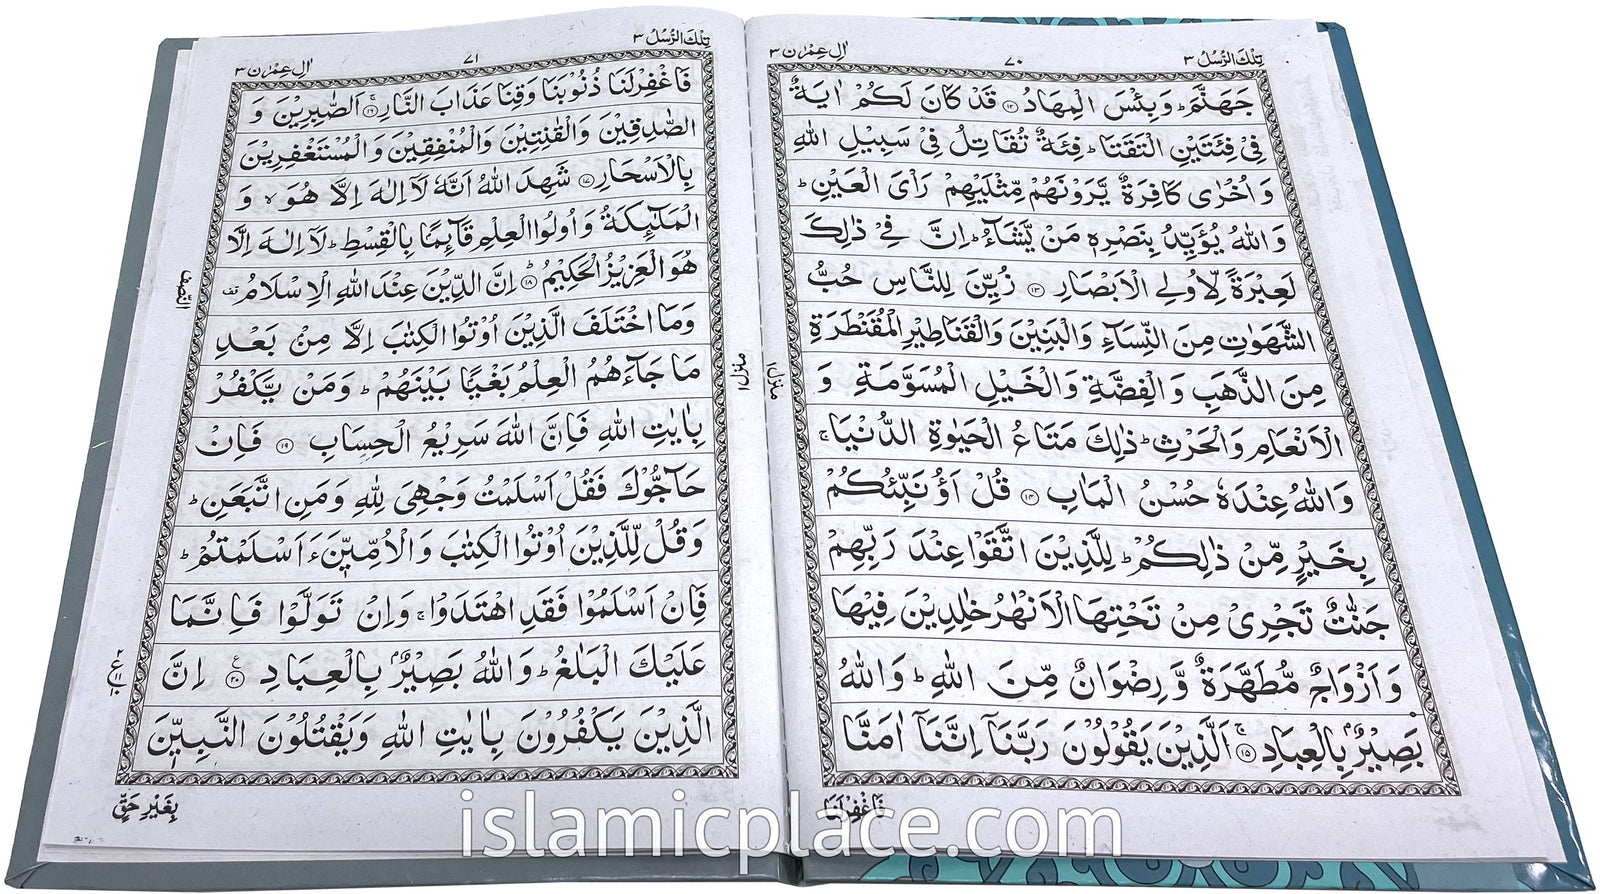 تِلْكَ الرُّسُلُ ٣
٧٠
اٰلِ عِمْرٰن ٣
جَهَنَّمَ ؕ وَبِئْسَ الْمِهَادُ ﴿۱۲﴾ قَدْ كَانَ لَكُمْ اٰيَةٌ
فِىْ فِئَتَيْنِ الْتَقَتَا ؕ فِئَةٌ تُقَاتِلُ فِىْ سَبِيْلِ اللّٰهِ
وَ اُخْرٰى كَافِرَةٌ يَّرَوْنَهُمْ مِّثْلَيْهِمْ رَاْىَ الْعَيْنِ ؕ
وَاللّٰهُ يُؤَيِّدُ بِنَصْرِهٖ مَنْ يَّشَآءُ ؕ اِنَّ فِىْ ذٰلِكَ
لَعِبْرَةً لِّاُولِى الْاَبْصَارِ ﴿۱۳﴾ زُيِّنَ لِلنَّاسِ حُبُّ
الشَّهَوٰتِ مِنَ النِّسَآءِ وَالْبَنِيْنَ وَالْقَنَاطِيْرِ الْمُقَنْطَرَةِ
مِنَ الذَّهَبِ وَ الْفِضَّةِ وَالْخَيْلِ الْمُسَوَّمَةِ وَ
الْاَنْعَامِ وَالْحَرْثِ ؕ ذٰلِكَ مَتَاعُ الْحَيٰوةِ الدُّنْيَا ۚ
وَاللّٰهُ عِنْدَهٗ حُسْنُ الْمَاٰبِ ﴿۱۴﴾ قُلْ اَؤُنَبِّئُكُمْ
بِخَيْرٍ مِّنْ ذٰلِكُمْ ؕ لِلَّذِيْنَ اتَّقَوْا عِنْدَ رَبِّهِمْ
جَنّٰتٌ تَجْرِىْ مِنْ تَحْتِهَا الْاَنْهٰرُ خٰلِدِيْنَ فِيْهَا
وَ اَزْوَاجٌ مُّطَهَّرَةٌ وَّ رِضْوَانٌ مِّنَ اللّٰهِ ؕ وَاللّٰهُ
بَصِيْرٌۢ بِالْعِبَادِ ﴿۱۵﴾ ۚ اَلَّذِيْنَ يَقُوْلُوْنَ رَبَّنَاۤ اِنَّنَاۤ اٰمَنَّا
فَاغْفِرْلَنَا
منزل ۱
تِلْكَ الرُّسُلُ ٣
٧١
اٰلِ عِمْرٰن ٣
فَاغْفِرْلَنَا ذُنُوْبَنَا وَقِنَا عَذَابَ النَّارِ ﴿۱۶﴾ ۚ اَلصّٰبِرِيْنَ وَ
الصّٰدِقِيْنَ وَالْقٰنِتِيْنَ وَالْمُنْفِقِيْنَ وَالْمُسْتَغْفِرِيْنَ
بِالْاَسْحَارِ ﴿۱۷﴾ شَهِدَ اللّٰهُ اَنَّهٗ لَاۤ اِلٰهَ اِلَّا هُوَ ۙ وَ
الْمَلٰٓئِكَةُ وَ اُولُوا الْعِلْمِ قَآئِمًاۢ بِالْقِسْطِ ؕ لَاۤ اِلٰهَ اِلَّا
هُوَ الْعَزِيْزُ الْحَكِيْمُ ﴿۱۸﴾ ؕ اِنَّ الدِّيْنَ عِنْدَ اللّٰهِ الْاِسْلَامُ قف
وَمَا اخْتَلَفَ الَّذِيْنَ اُوْتُوا الْكِتٰبَ اِلَّا مِنْۢ بَعْدِ
مَا جَآءَهُمُ الْعِلْمُ بَغْيًاۢ بَيْنَهُمْ ؕ وَمَنْ يَّكْفُرْ
بِاٰيٰتِ اللّٰهِ فَاِنَّ اللّٰهَ سَرِيْعُ الْحِسَابِ ﴿۱۹﴾ فَاِنْ
حَآجُّوْكَ فَقُلْ اَسْلَمْتُ وَجْهِىَ لِلّٰهِ وَمَنِ اتَّبَعَنِ ؕ
وَقُلْ لِّلَّذِيْنَ اُوْتُوا الْكِتٰبَ وَالْاُمِّيّٖنَ ءَاَسْلَمْتُمْ ؕ
فَاِنْ اَسْلَمُوْا فَقَدِ اهْتَدَوْا ۚ وَاِنْ تَوَلَّوْا فَاِنَّمَا
عَلَيْكَ الْبَلٰغُ ؕ وَاللّٰهُ بَصِيْرٌۢ بِالْعِبَادِ ﴿۲۰﴾ ع اِنَّ
الَّذِيْنَ يَكْفُرُوْنَ بِاٰيٰتِ اللّٰهِ وَيَقْتُلُوْنَ النَّبِيّٖنَ
بِغَيْرِ حَقٍّ
منزل ۱
النِّصف
islamicplace.com